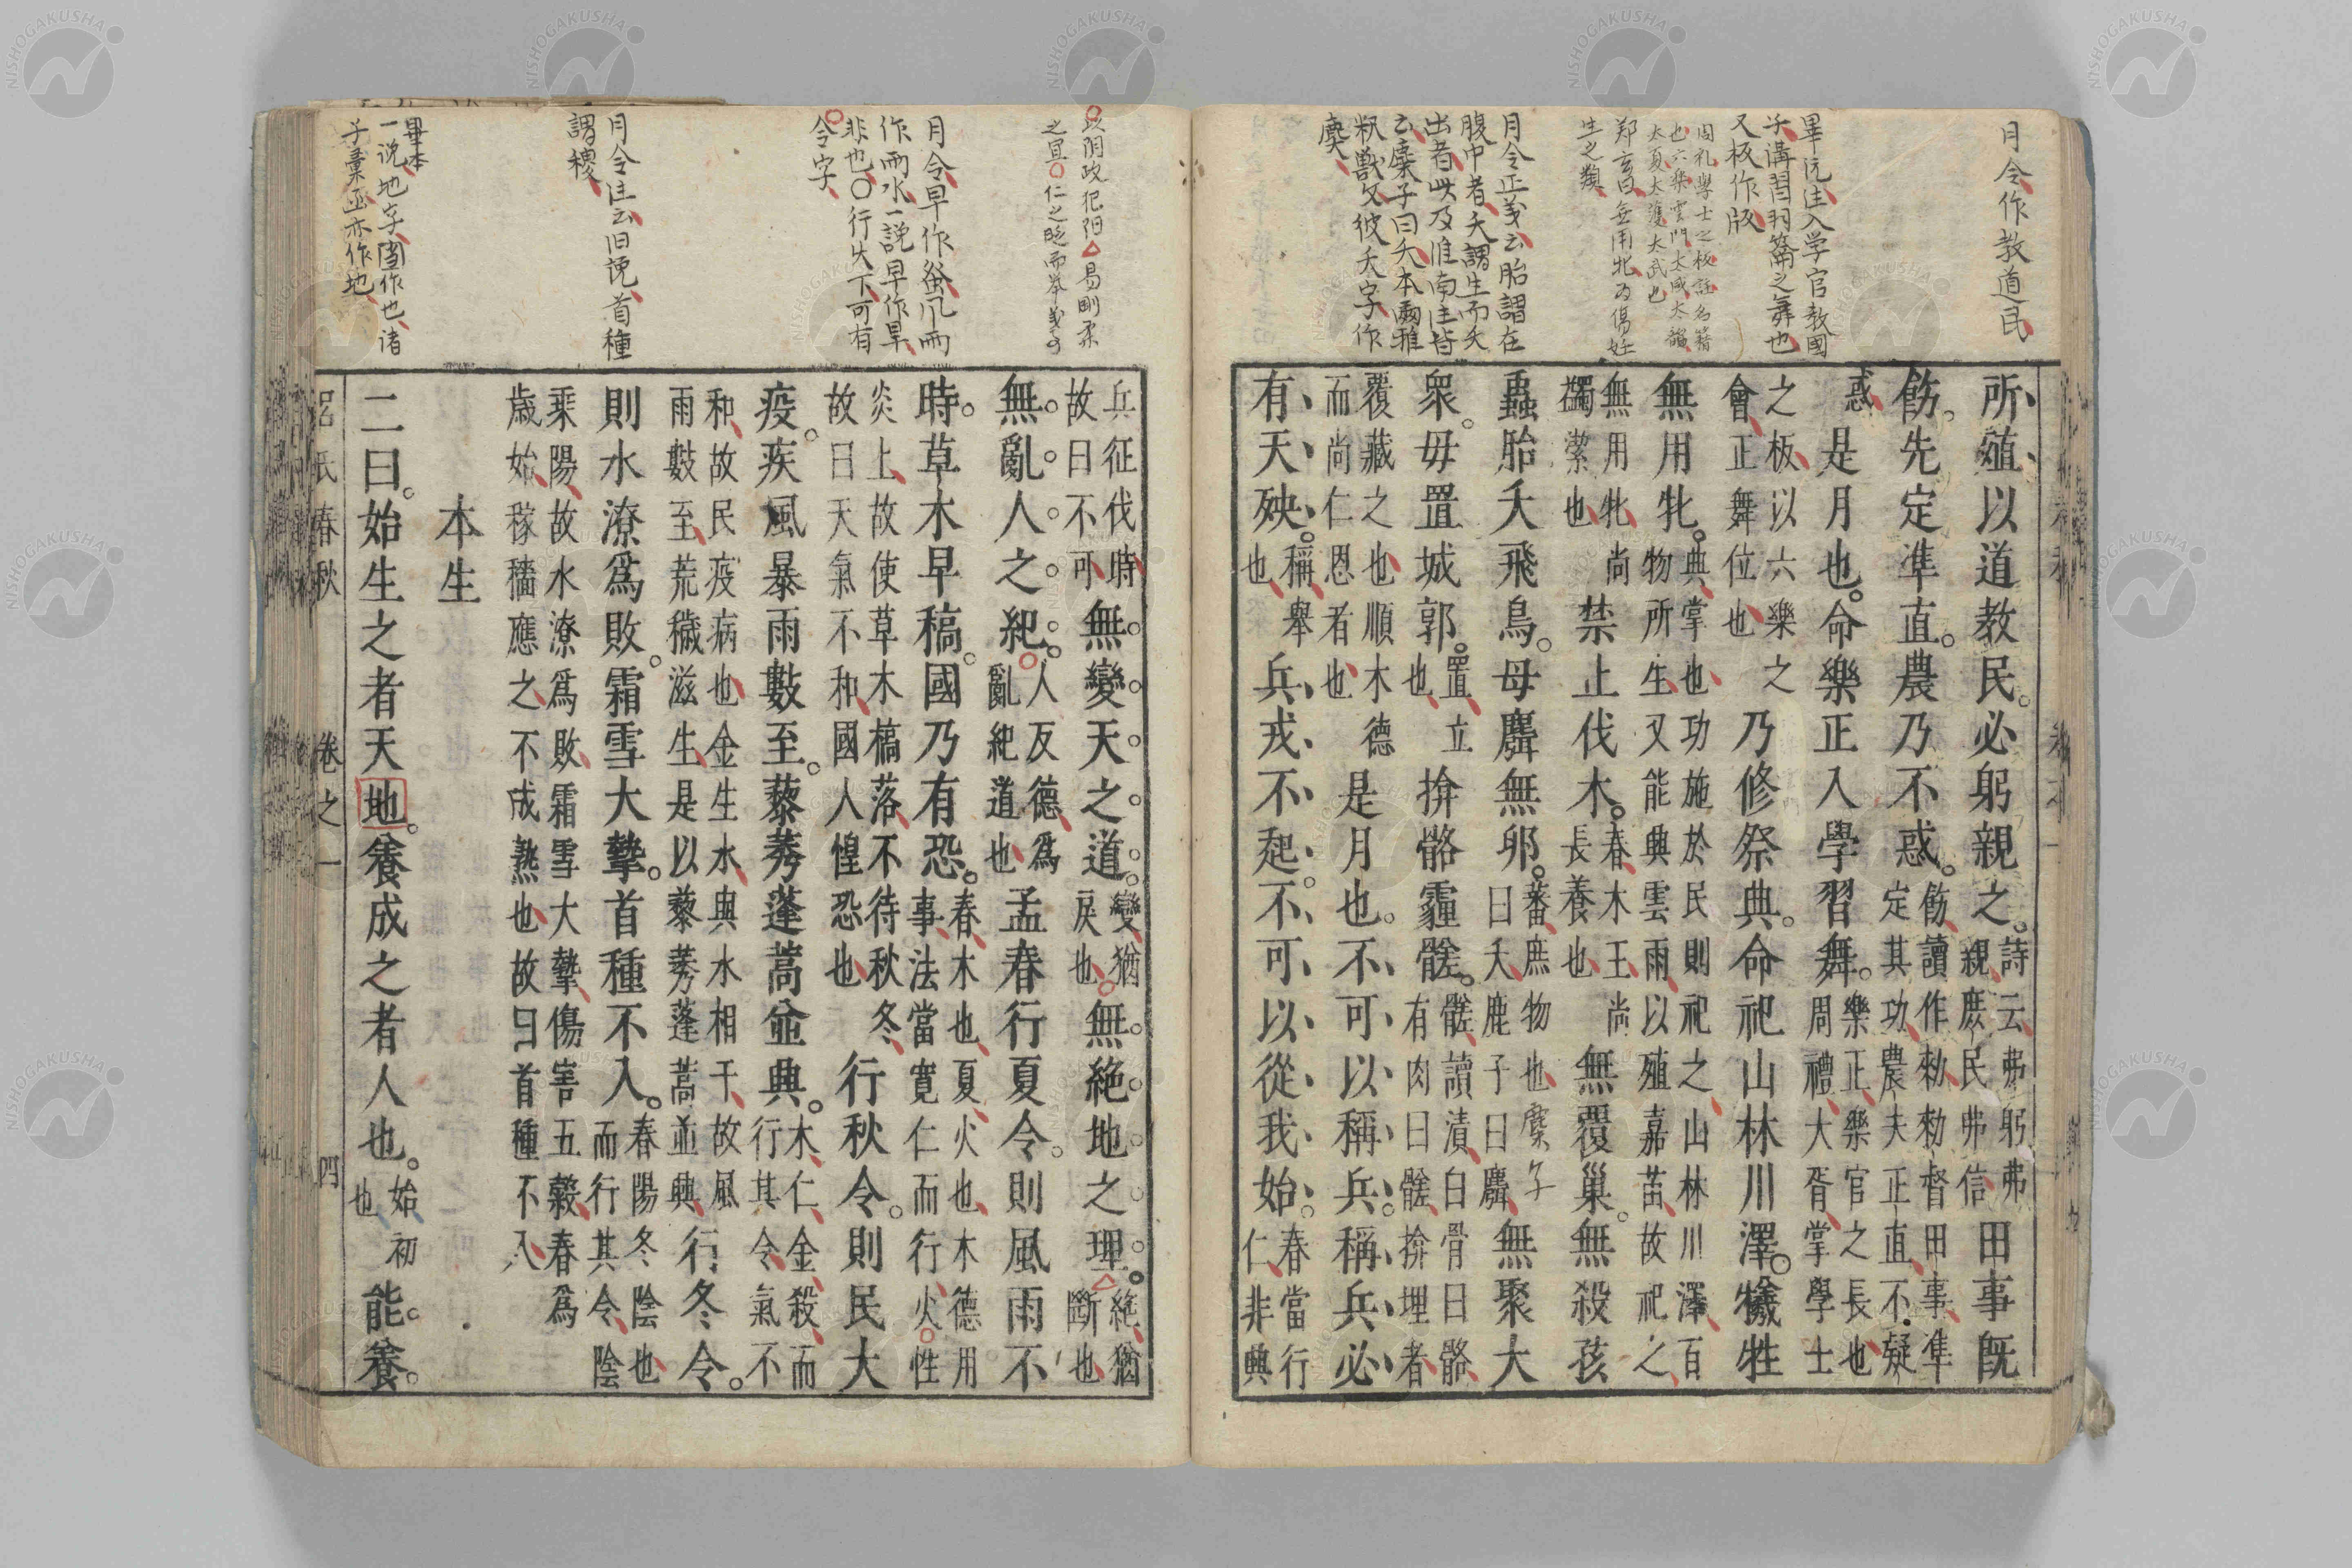 月令作教道民
畢沅注入学官教國
子溝習羽籥之舞也
又板作版
周礼學士之板註名籍
也六樂雲門大咸大韶
大夏大濩大武也
郑玄曰無用牝為傷妊
生之類
月令正義云胎謂在
腹中者夭謂生而夭
出者此及淮南注皆
云麋子曰夭本爾雅
釈獣文彼夭字作
麌
所殖以道教民必躬親之詩云弗躬弗親庶民弗信田事既
飭先定準直農乃不惑飭讀作勑勑督田事準定其功農夫正直不疑
惑是月也命樂正入學習舞樂正樂官之長也周禮大胥掌學士
之板以六樂之會正舞位也乃修祭典命祀山林川澤犧牲
無用牝典掌也功施於民則祀之山林川澤百物所生又能興雲雨以殖嘉苗故祀之
無用牝尚蠲潔也禁止伐木春木王尚長養也無覆巢無殺孩
蟲胎夭飛鳥毋麛無卵蕃庶物也麋子曰夭鹿子曰麛無聚大
衆毋置城郭置立也揜骼霾髊髊讀漬白骨曰骼有肉曰髊揜埋者
覆藏之也順木德而尚仁恩者也是月也不可以稱兵稱兵必
有天殃稱舉也兵戎不起不可以從我始春當行仁非興
以阴政犯阳易剛柔
之宜仁之時而举義事
月令早作蚤風雨
作雨水一説早作旱
非也行失下可有
令字
月令注云旧説首種
謂稷
畢本
一説地字當作也諸
子彙函亦作地
兵征伐時故曰不可無變天之道變猶戾也無絕地之理絕猶斷也
無亂人之紀人反德爲亂紀道也孟春行夏令則風雨不
時草木早稿國乃有恐春木也夏火也木德用事法當寬仁而行火性
炎上故使草木槁落不待秋冬故曰天氣不和國人惶恐也行秋令則民大
疫疾風暴雨數至藜莠蓬蒿竝興木仁金殺而行其令氣不
和故民疫病也金生水與水相干故風雨數至荒穢滋生是以藜莠蓬蒿並興行冬令
則水潦爲敗霜雪大摯首種不入春陽冬陰也而行其令陰
乘陽故水潦爲敗霜雪大摯傷害五穀春爲歲始稼穡應之不成熟也故曰首種不入
本生
二曰始生之者天地養成之者人也始初也能養
呂氏春秋 卷之一 四